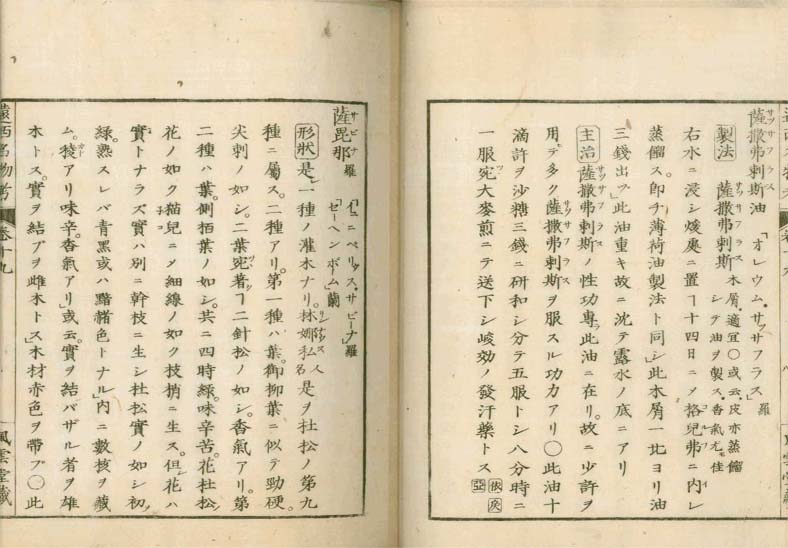 薩撒弗剌斯油 「オレウム・サッサフラス」羅
製法 薩撒弗剌斯 木屑、適宜〇或云、皮亦蒸餾シテ油ヲ製ス、香氣尤モ佳
右水ニ浸シ煖處ニ置ヿ十四日ニメ格兒弗ニ内レ
蒸餾ス。即チ薄荷油製法ト同シ」此木屑一比ヨリ油
三錢出ツ」此油重キ故ニ沈テ露水ノ底ニアリ
主治 薩撒弗剌斯ノ性功專ラ此油ニ在リ。故ニ少許ヲ
用テ多ク薩撒弗剌斯ヲ服スル功力アリ〇此油十
滴許ヲ沙糖三錢ニ研和シ分テ五服トシ八分時ニ
一服宛大麥煎ニテ送下シ峻効ノ發汗藥トス
薩毘那 羅 「イユニペリュス・サビーナ」羅「セーヘンボーム」蘭
形狀 是一種ノ灌木ナリ。林娜私人名是ヲ杜松ノ第九
種ニ屬ス。二種アリ。第一種ハ葉。御柳葉ニ似テ勁硬。
尖刺ノ如シ。二葉宛著ヿ二針松ノ如シ。香氣アリ。第
二種ハ葉。側栢葉ノ如シ。共ニ四時綠。味辛苦。花杜松
花ノ如ク猫兒ニメ細線ノ如ク技梢ニ生ス。但花ハ
實トナラズ實ハ別ニ幹枝ニ生シ杜松實ノ如シ初
綠。熟スレバ青黑或ハ黯赭色トナル」内ニ數核ヲ藏
ム。稜アリ味辛。香氣アリ」或云。實ヲ結バザル者ヲ雄
木トス。實ヲ結ブヲ雌木トス」木材赤色ヲ帶ブ〇此
遠西名物考 卷十九
風雲堂藏